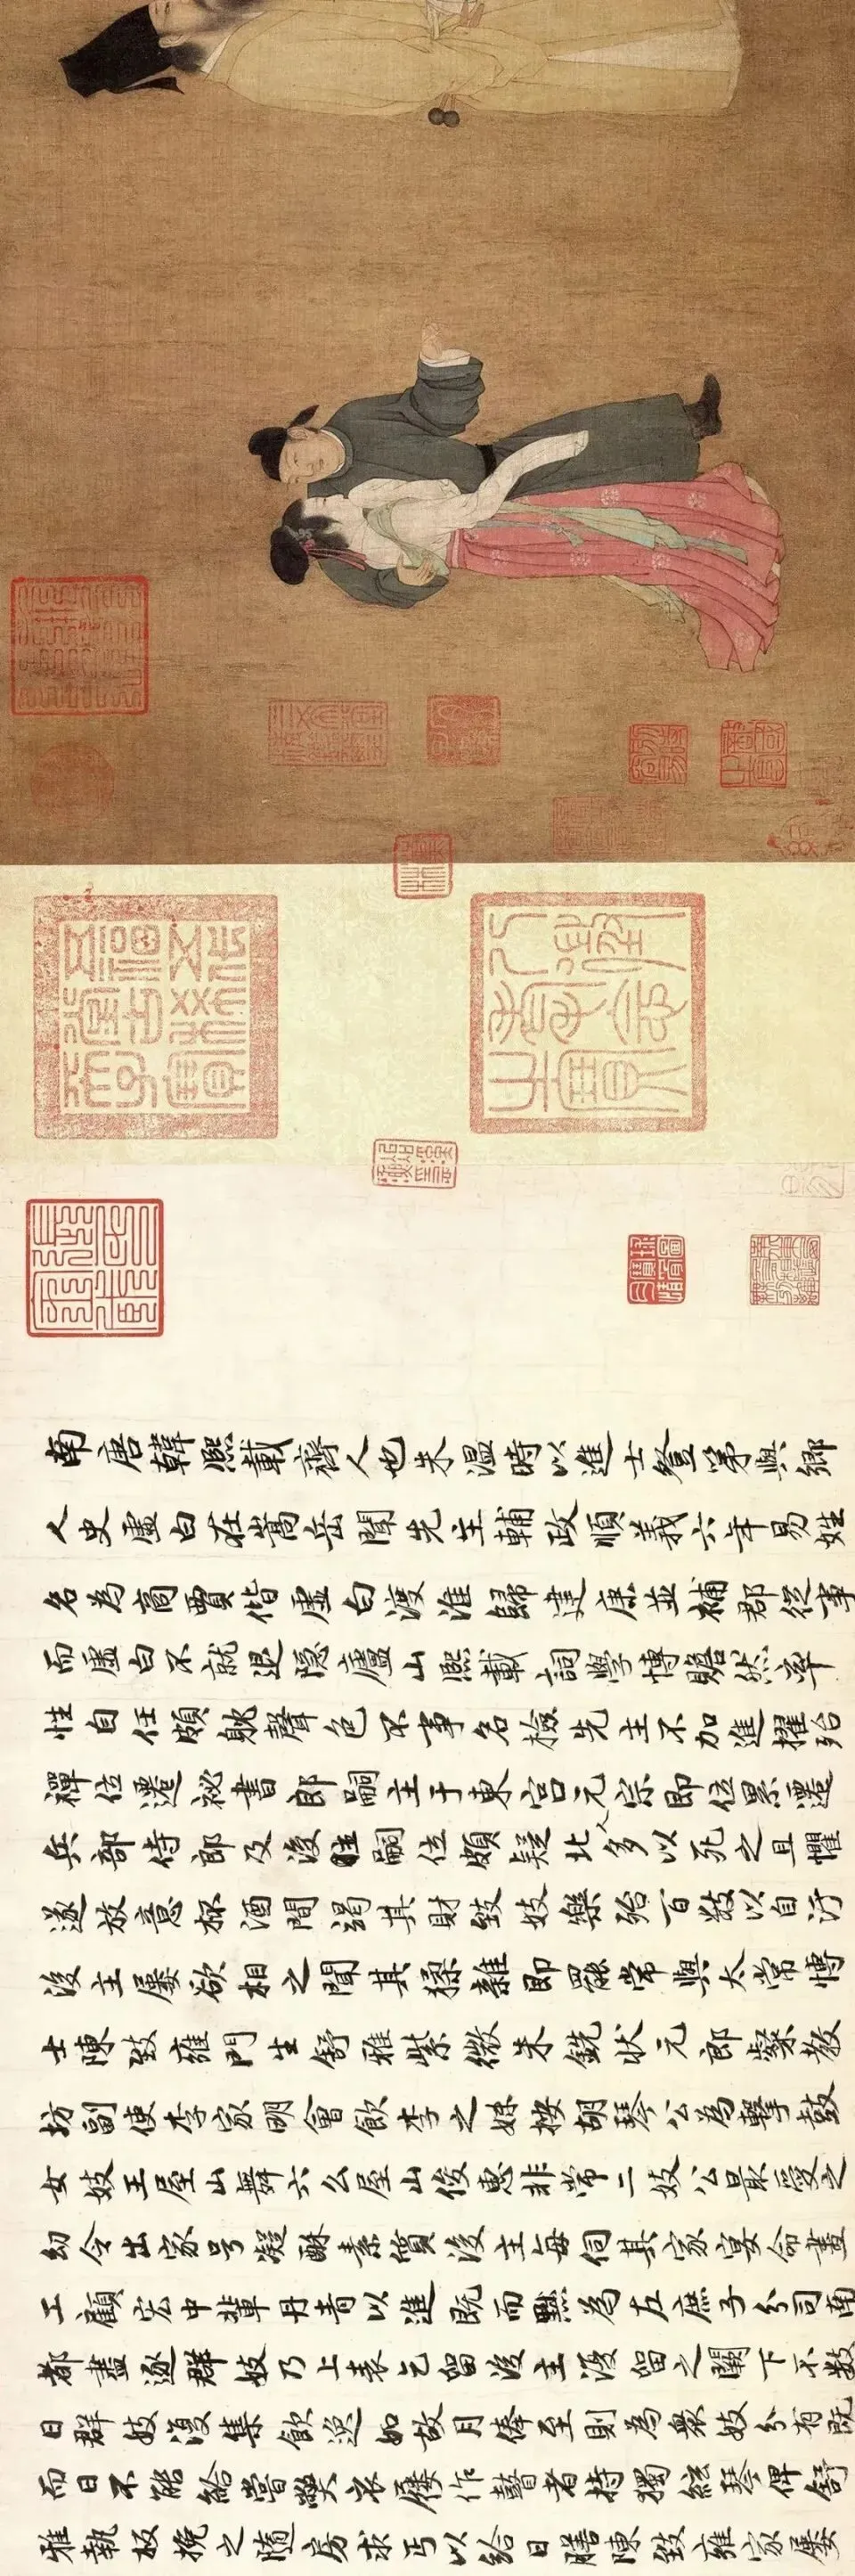 五福五代堂古稀天子寶
八徵耄念之寶
南唐韓熙載齊人也朱溫時以進士登第與鄉
人史虛白在嵩岳聞先主輔政順義六年易姓
名為商賈偕虛白渡淮歸建康並補郡從事
而虛白不就退隱廬山熙載詞學博贍然率
性自任頗躭聲色不事名檢先主不加進擢殆
禪位遷祕書郎嗣主于東宮元宗即位累遷
兵部侍郎及後主嗣位頗疑北人多以死之且懼
遂放意杯酒間竭其財致妓樂殆百數以自汙
後主屢欲相之聞其猱雜即罷常與太常博
士陳致雍門生舒雅紫微朱銑狀元郎粲教
坊副使李家明會飲李之妹按胡琴公為擊鼓
女妓王屋山舞六幺屋山俊惠非常二妓公最愛之
幼令出家号凝酥素質後主每伺其家宴命畫
工顧宏中輩丹青以進既而黜為左庶子分司南
都盡逐群妓乃上表乞留後主復留之闕下不數
日群妓復集飲逸如故月俸至則為衆妓分有既
而日不能給嘗弊衣屨作瞽者持獨絃琴俾舒
雅執板挽之隨房求丐以給日膳陳致雍家屢